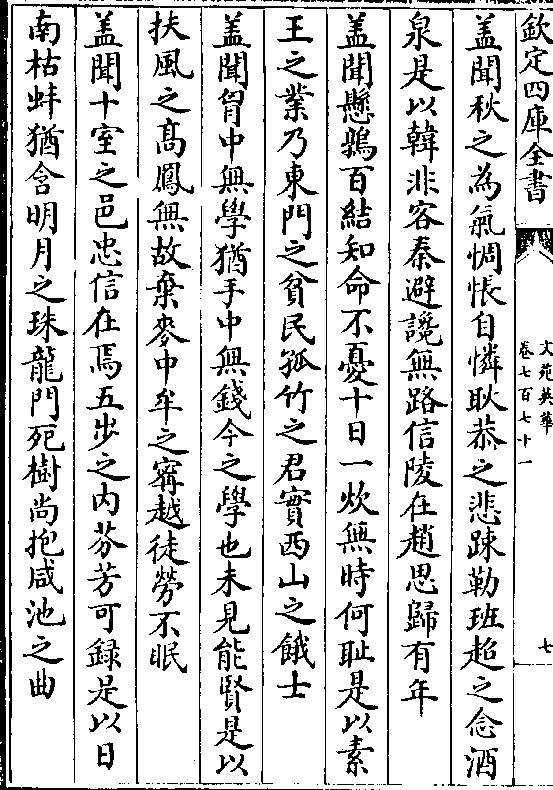 欽定四庫全書
文苑英華
卷七百七十一
七
蓋聞秋之為氣惆悵自憐耿恭之悲踈勒班超之念酒
泉是以韓非客秦避讒無路信陵在趙思歸有年
蓋聞懸鶉百結知命不憂十日一炊無時何耻是以素
王之業乃東門之貧民孤竹之君實西山之餓士
蓋聞胷中無學猶手中無錢今之學也未見能賢是以
扶風之髙鳳無故棄麥中牟之寗越徒勞不眠
蓋聞十室之邑忠信在焉五步之内芬芳可録是以日
南枯蚌猶含明月之珠龍門死樹尚抱咸池之曲